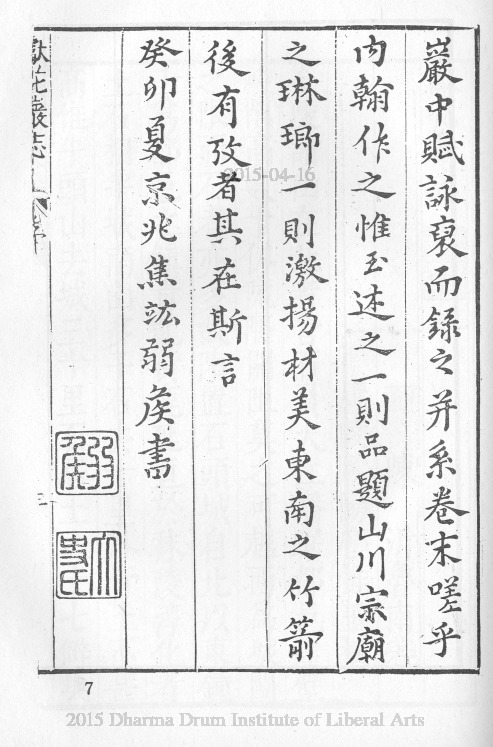 巖中賦詠裒而錄之并系卷末嗟乎
内翰作之惟玉述之一則品題山川宗廟
之琳瑯一則激揚材美東南之竹箭
後有攷者其在斯言
癸卯夏京兆焦竑弱矦書
獻花巖志
2015-04-16
7
2015 Dharma Drum Institute of Liberal Arts